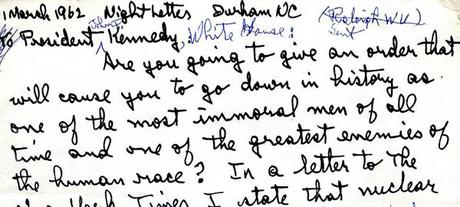 1 March 1962 Night Letter Durham NC (Raleigh W.U.)
Sent
To President Kennedy, White House:
Are you going to give an order that
will cause you to go down in history as
one of the most immoral men of all
time and one of the greatest enemies of
the human race? In a letter to The
New York Times I state that nuclear